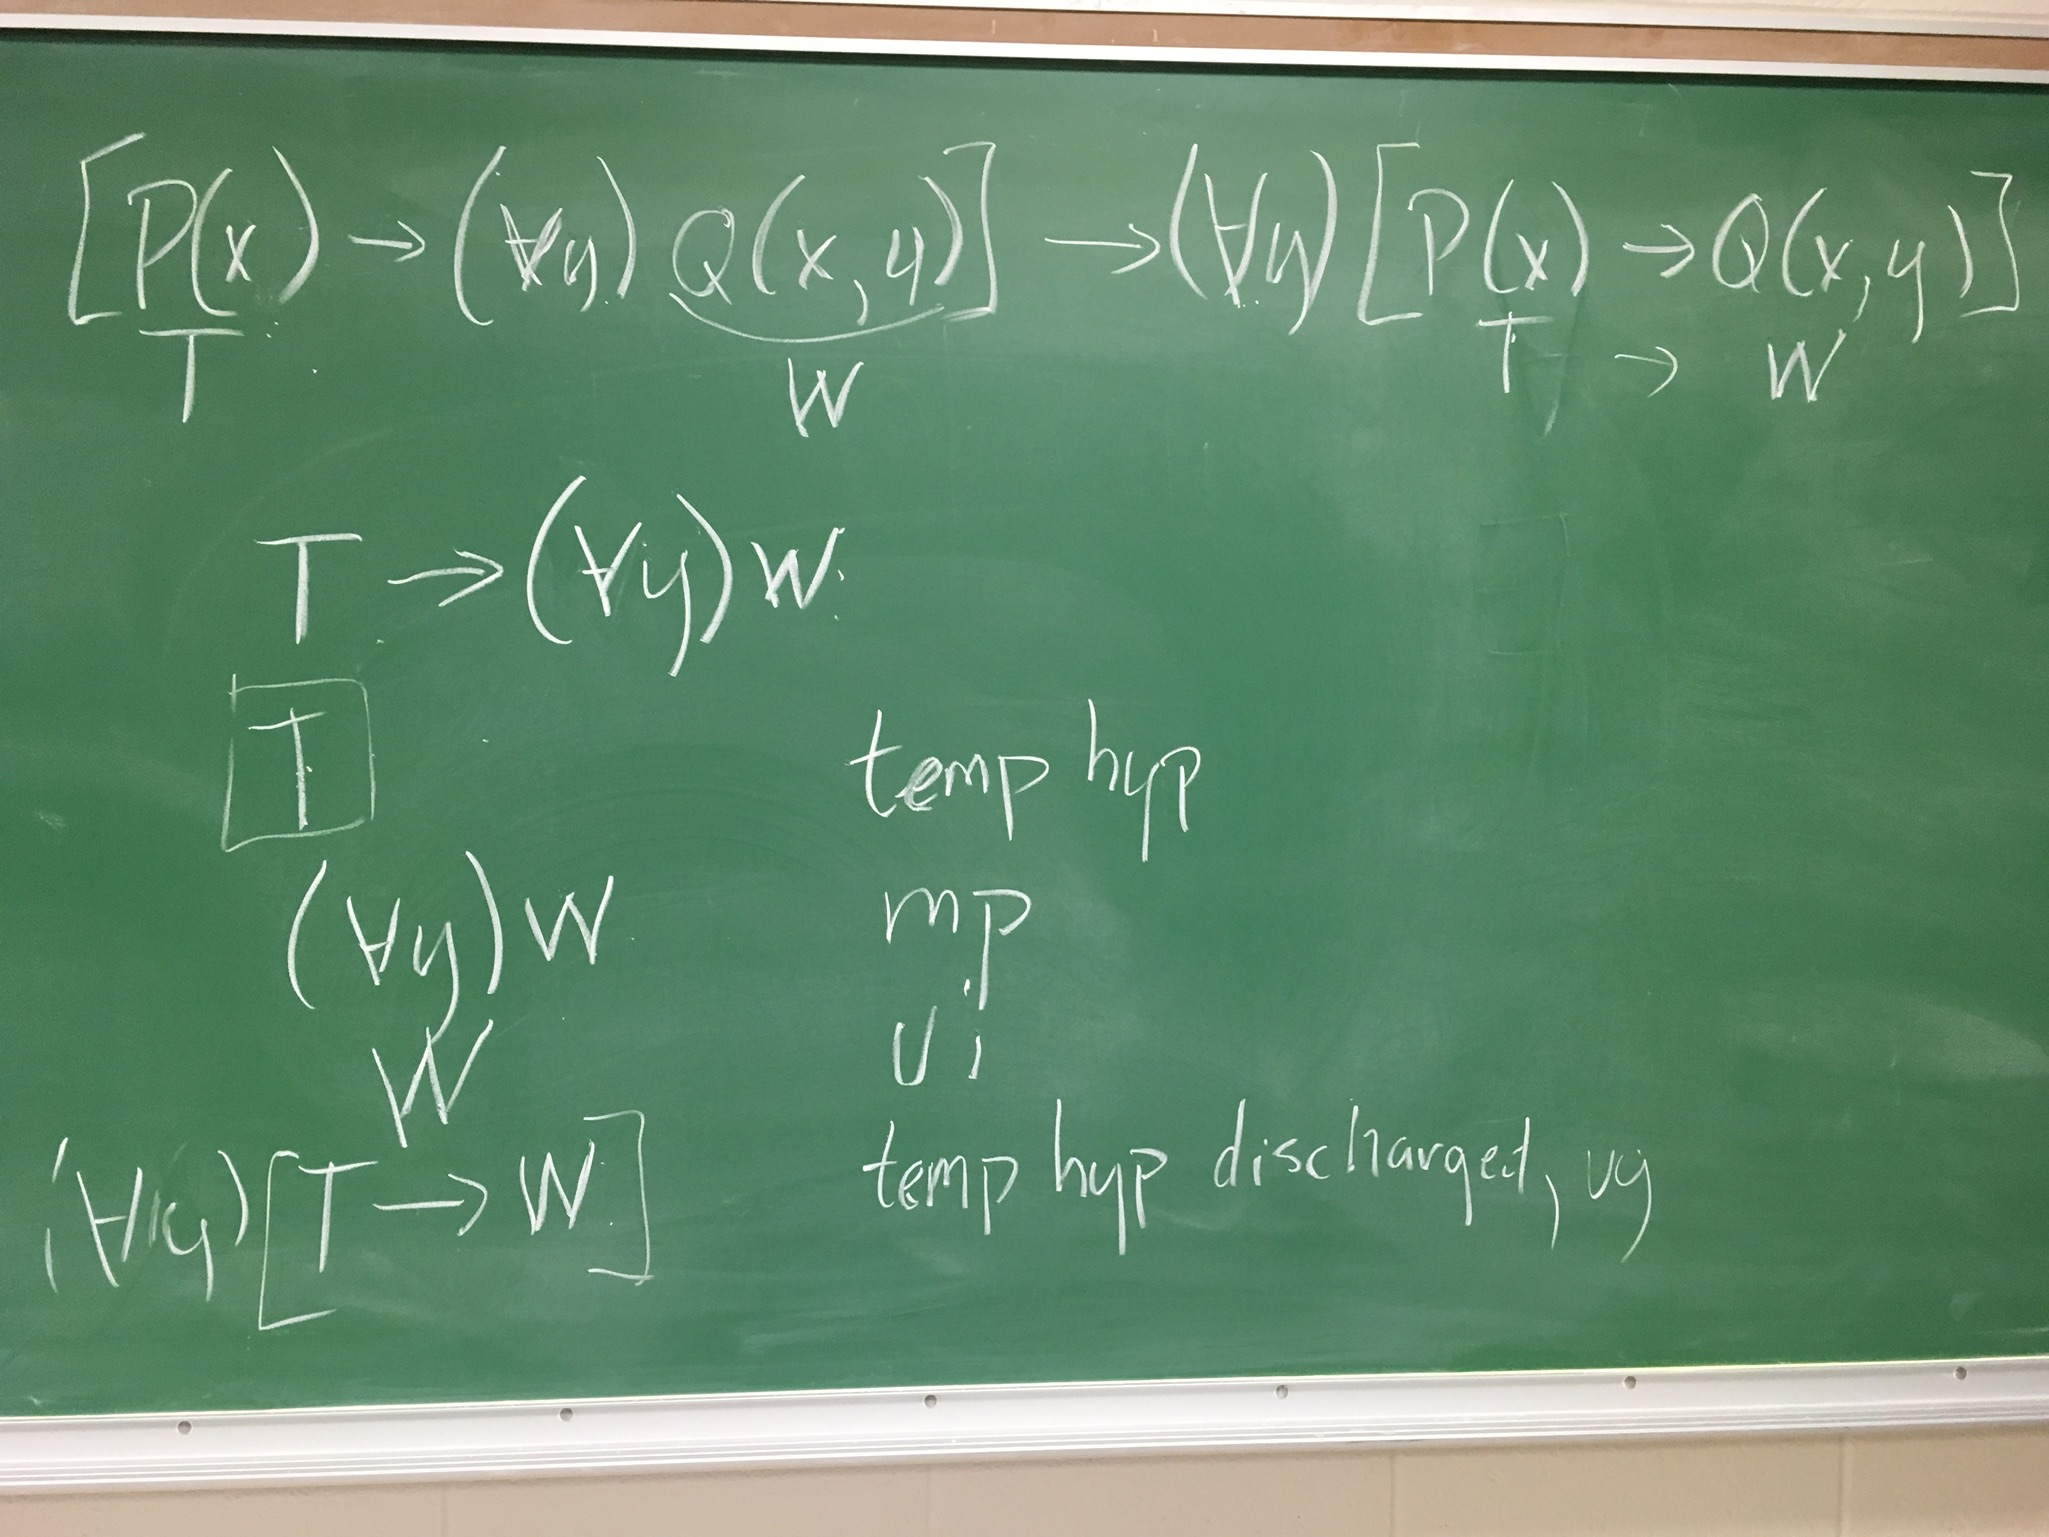 [P(x) → (∀y) Q(x,y)] → (∀y)[P(x) → Q(x,y)]
T W T → W
T → (∀y) W
T temp hyp
(∀y) W mp
W ui
(∀y)[T → W] temp hyp discharged, ug